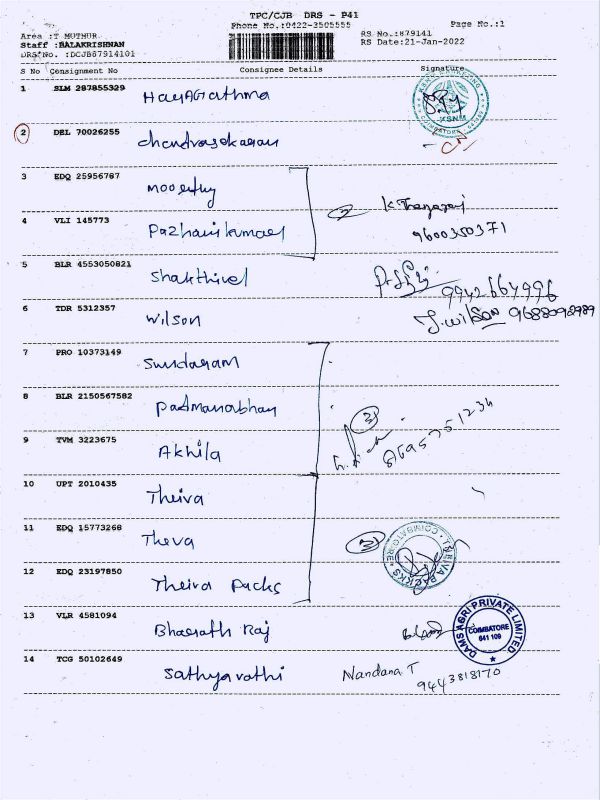 TPC/CJB DRS - P41
Phone No.:0422-3505555
Page No.:1
Area :T MUTHUR
Staff :BALAKRISHNAN
DRS No. :DCJB87914101
RS No.:879141
RS Date:21-Jan-2022
S No Consignment No Consignee Details Signature
1 SLM 287855329
KSNM
COIMBATORE
2 DEL 70026255 chandrasekaran
3 EDQ 25956787 moorthy
4 VLI 145773 Pazhanikumar
2 K Thangaraj
9600350371
5 BLR 4553050821 Shakthivel
9942664996
6 TDR 5312357 Wilson J.Wilson 9688098989
7 PRO 10373149 Sundaram
8 BLR 2150567582 Padmanabhan
3
8695751234
9 TVM 3223675 Akhila
10 UPT 2010435 Theiva
11 EDQ 15773268 Theva
3
THEIVA PACKS
COIMBATORE
12 EDQ 23197850 Theiva Packs
13 VLR 4581094 Bharath Raj
DAMS AGRI PRIVATE LIMITED
COIMBATORE
641 109
14 TCG 50102649 Sathyavathi Nandana T
9443818170